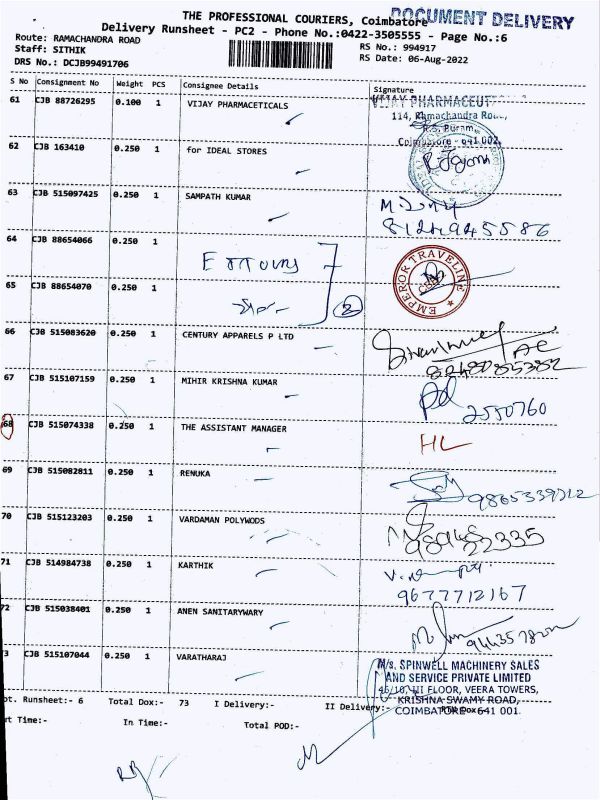 THE PROFESSIONAL COURIERS, Coimbatore
DOCUMENT DELIVERY
Delivery Runsheet - PC2 - Phone No.:0422-3505555 - Page No.:6
Route: RAMACHANDRA ROAD
RS No.: 994917
Staff: SITHIK
RS Date: 06-Aug-2022
DRS No.: DCJB99491706
S No Consignment No Weight PCS Consignee Details Signature
61 CJB 88726295 0.100 1 VIJAY PHARMACETICALS
VIJAY PHARMACEUT
114, Ramachandra Road,
R.S. Puram,
Coimbatore - 641 002.
62 CJB 163410 0.250 1 for IDEAL STORES
63 CJB 515097425 0.250 1 SAMPATH KUMAR
8124945586
64 CJB 88654066 0.250 1
EMPEROR TRAVELINE
65 CJB 88654070 0.250 1
2
66 CJB 515083620 0.250 1 CENTURY APPARELS P LTD
67 CJB 515107159 0.250 1 MIHIR KRISHNA KUMAR
2550760
68 CJB 515074338 0.250 1 THE ASSISTANT MANAGER
HL
69 CJB 515082811 0.250 1 RENUKA
9865339212
70 CJB 515123203 0.250 1 VARDAMAN POLYWODS
71 CJB 514984738 0.250 1 KARTHIK
9677712167
72 CJB 515038401 0.250 1 ANEN SANITARYWARY
3 CJB 515107044 0.250 1 VARATHARAJ
M/s. SPINWELL MACHINERY SALES
AND SERVICE PRIVATE LIMITED
46/10, III FLOOR, VEERA TOWERS,
KRISHNA SWAMY ROAD,
COIMBATORE - 641 001.
ot. Runsheet:- 6 Total Dox:- 73 I Delivery:- II Delivery:-
t Time:- In Time:- Total POD:-